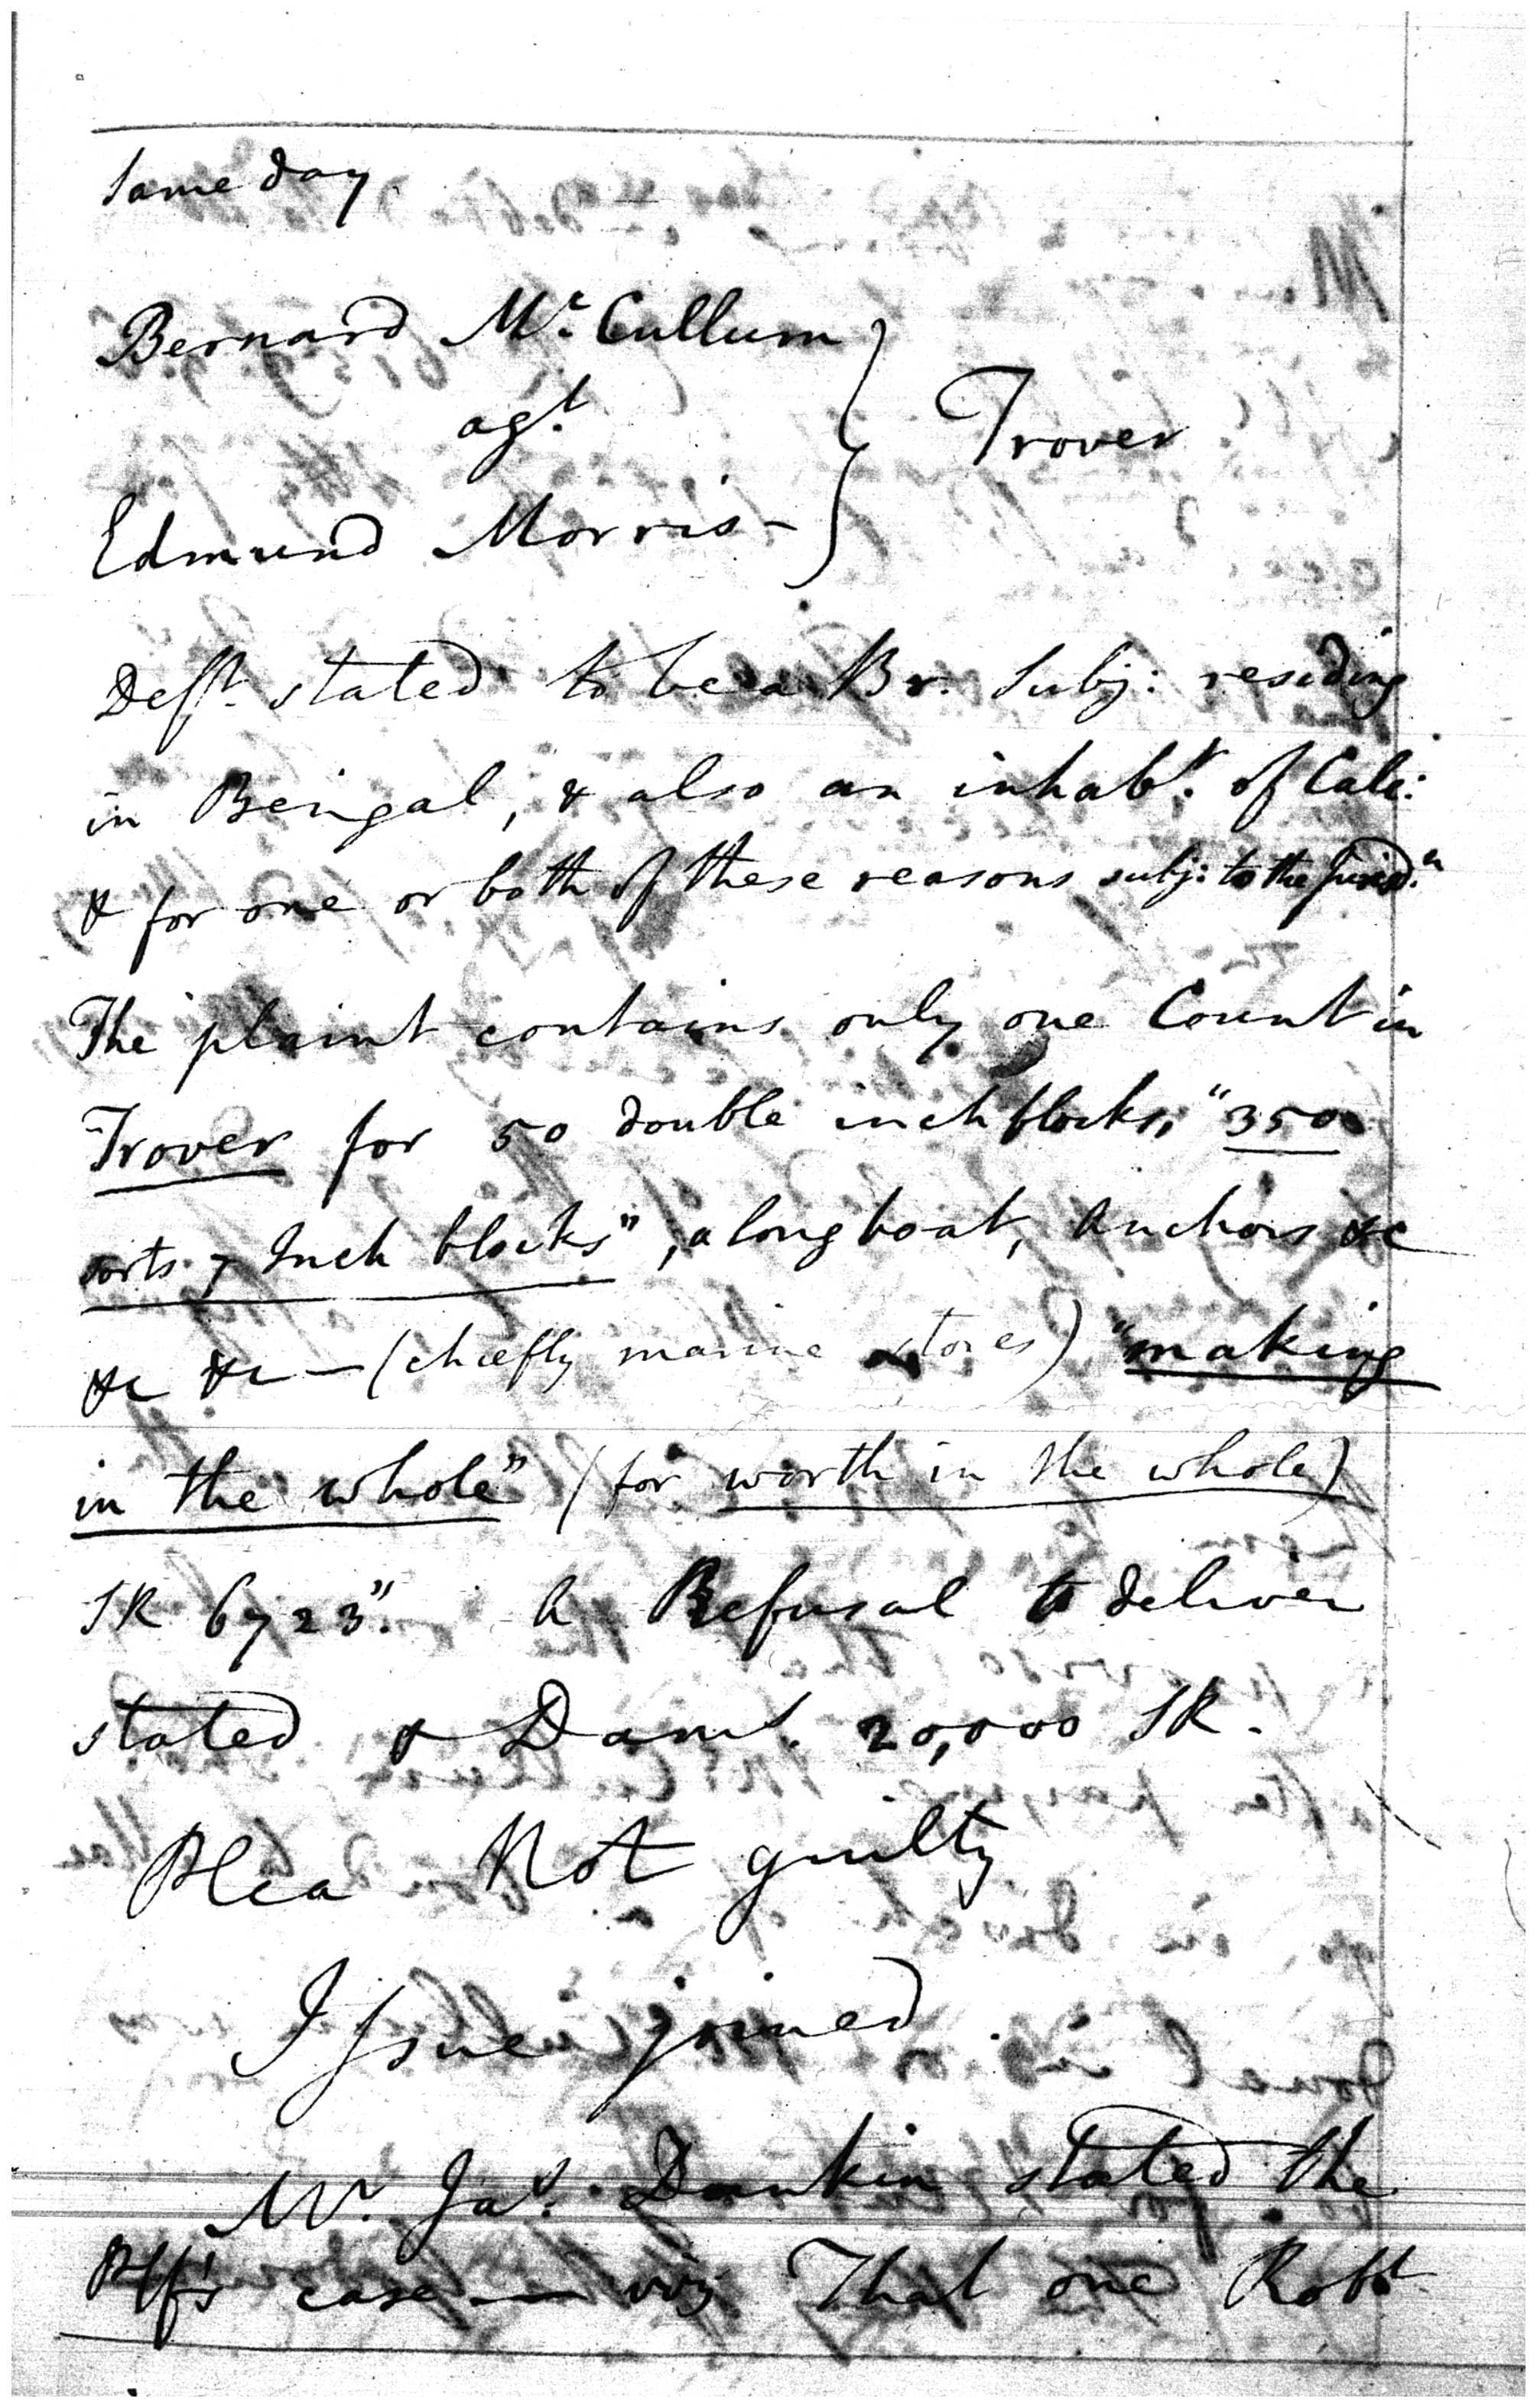 Same day
Bernard Mc. Cullum
agt.
Trover
Edmund Morris -
Deft. stated to be a Br. Subj: residing
in Bengal, & also an inhabt. of Calc:
& for one or both of these reasons subj: to the Jurisdn.
The plaint contains only one Count in
Trover for 50 double inch blocks, "350
sorts 7 Inch blocks", a long boat, Anchors &c
&c &c — (chiefly marine stores) "making
in the whole" (for worth in the whole)
SR 6723". A Refusal to deliver
stated & Dams. 20,000 SR.
Plea Not guilty
Issue joined.
Mr. Jas. Dunkin stated the
Plff's case — viz That one Robt